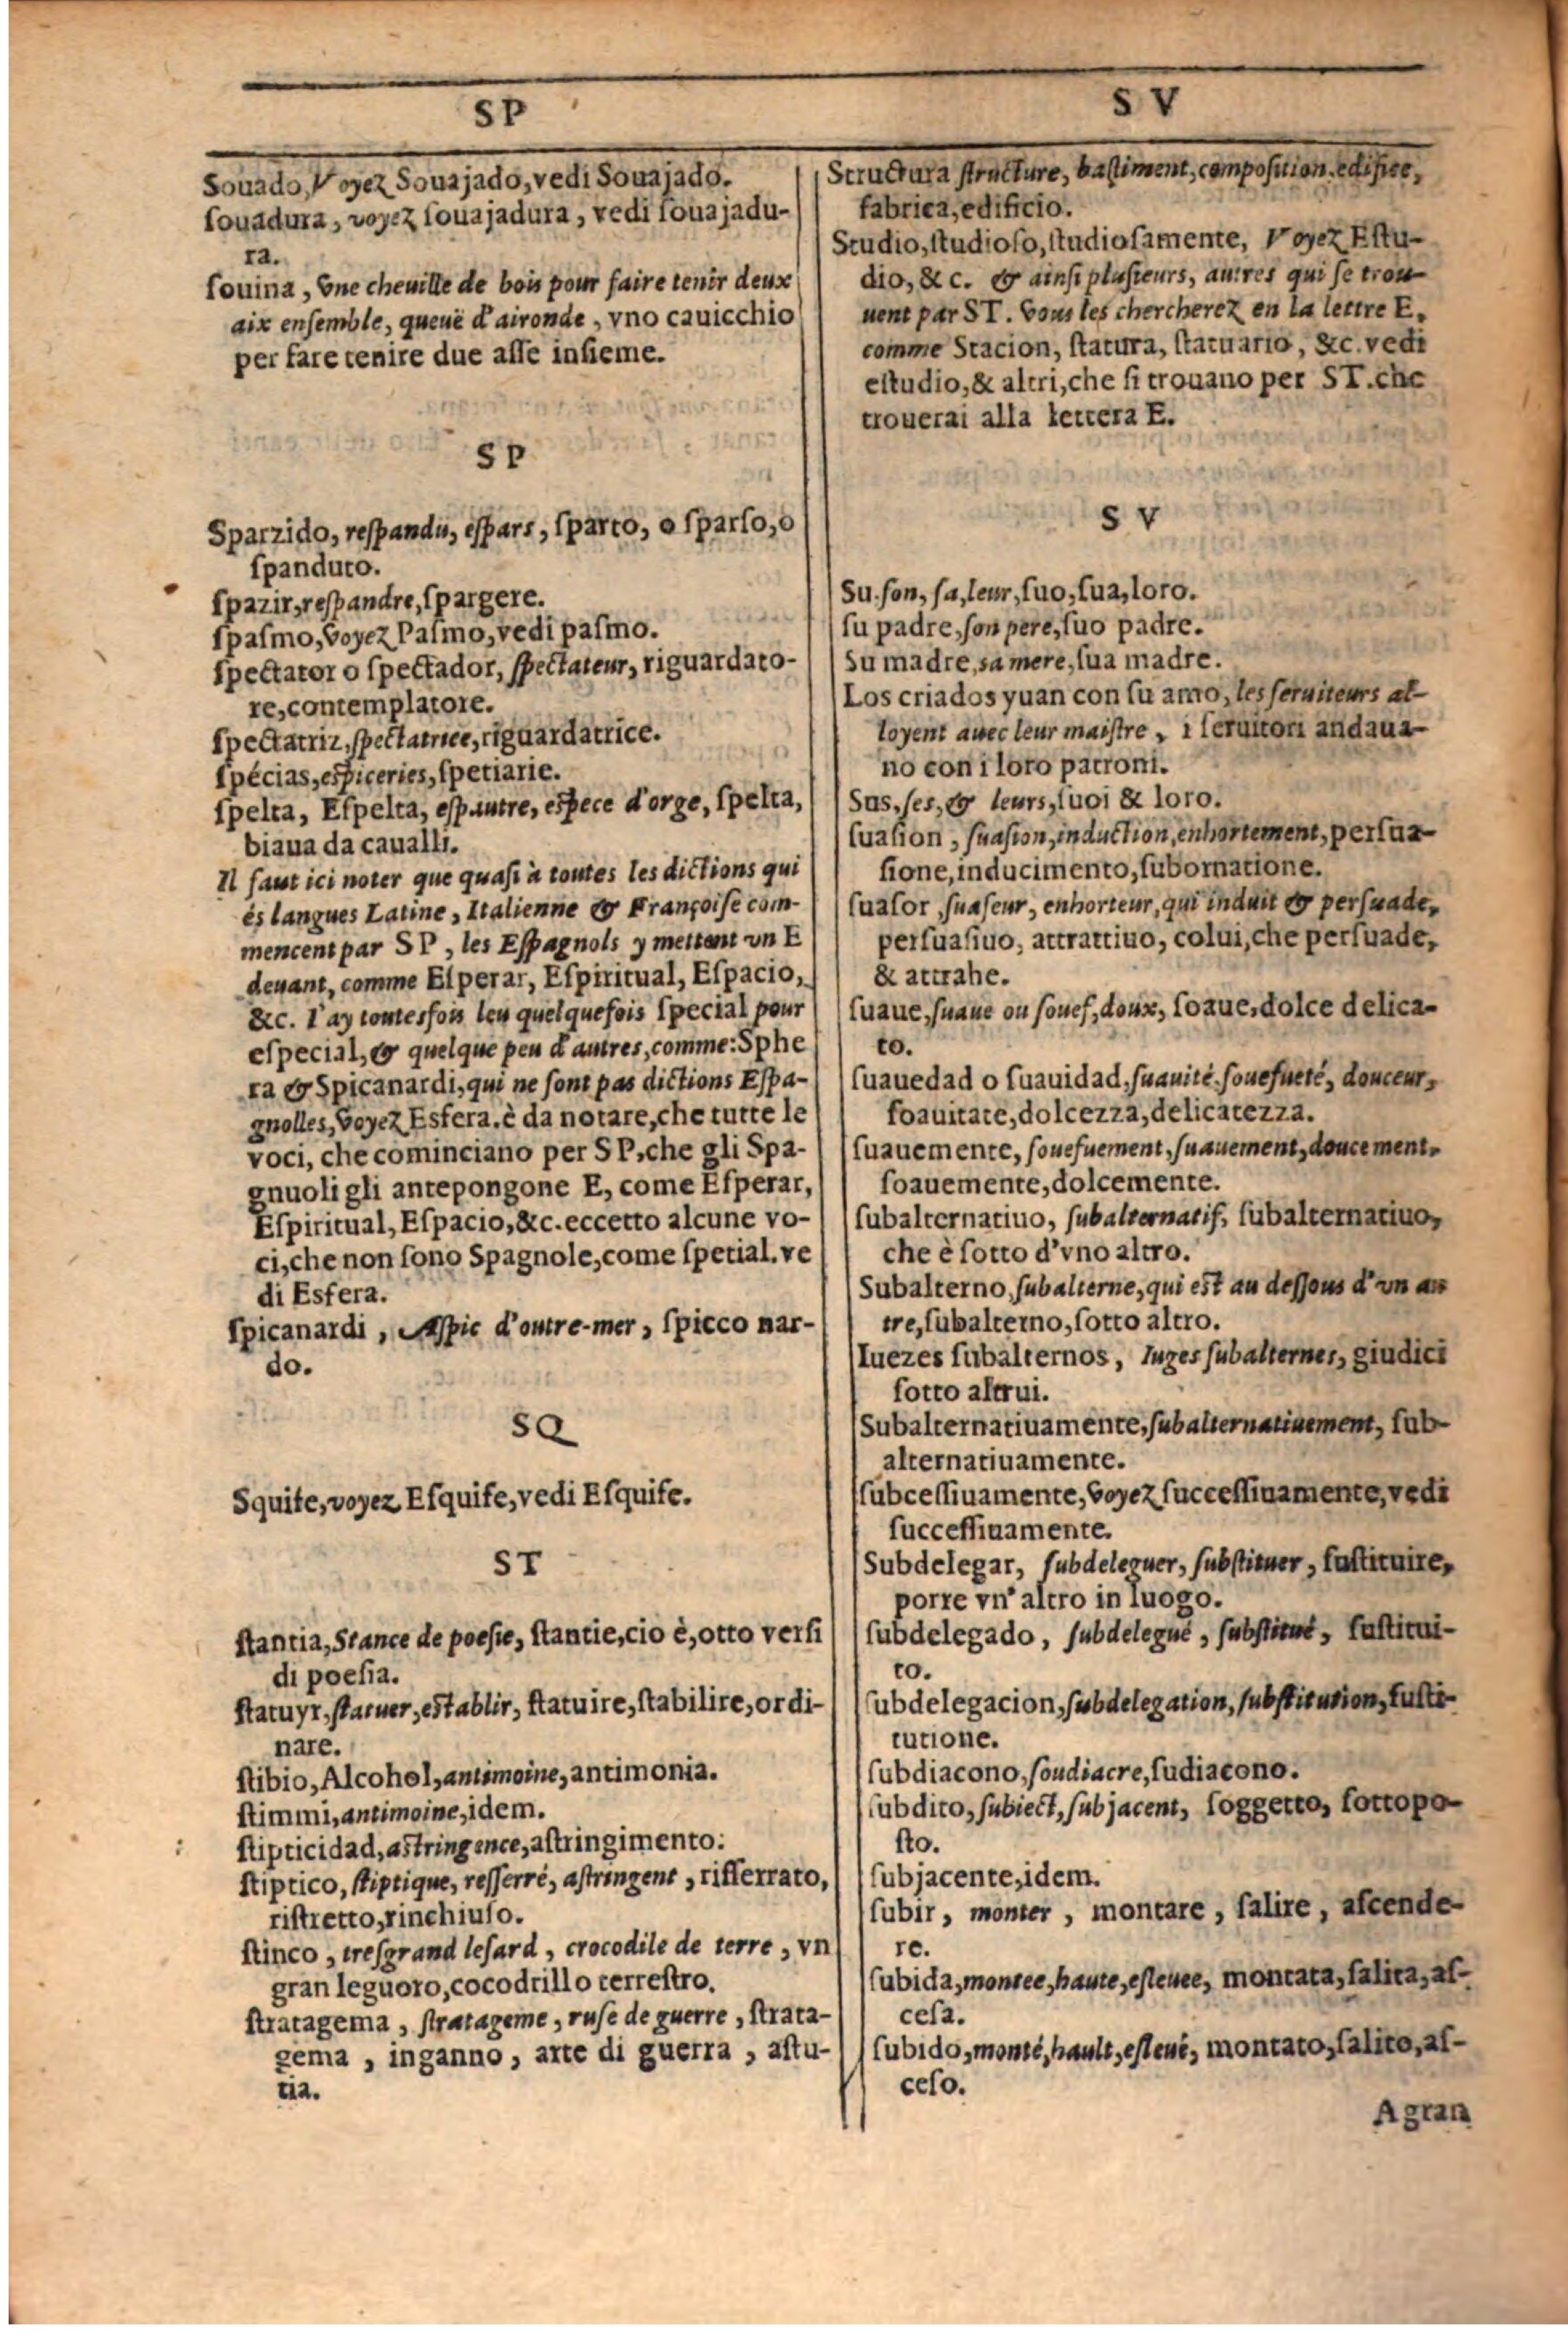 SP
Souado, Voyez Souajado, vedi Souajado.
ſouadura, voyez ſouajadura, vedi ſouajadu-
ra.
ſouina, vne cheuille de bois pour faire tenir deux
aix enſemble, queuë d'aironde, vno cauicchio
per fare tenire due aſſe inſieme.
SP
Sparzido, reſpandu, eſpars, ſparto, o ſparſo, o
ſpanduto.
ſpazir, reſpandre, ſpargere.
ſpaſmo, voyez Paſmo, vedi paſmo.
ſpectator o ſpectador, ſpectateur, riguardato-
re, contemplatore.
ſpectatriz, ſpectatrice, riguardatrice.
ſpécias, eſpiceries, ſpetiarie.
ſpelta, Eſpelta, eſpautre, eſpece d'orge, ſpelta,
biaua da caualli.
Il faut ici noter que quaſi à toutes les dictions qui
és langues Latine, Italienne & Françoiſe com-
mencent par SP, les Eſpagnols y mettent vn E
deuant, comme Eſperar, Eſpiritual, Eſpacio,
&c. I'ay toutesfois leu quelquefois ſpecial pour
eſpecial, & quelque peu d'autres, comme: Sphe
ra & Spicanardi, qui ne ſont pas dictions Eſpa-
gnolles, voyez Esfera. è da notare, che tutte le
voci, che cominciano per SP, che gli Spa-
gnuoli gli antepongone E, come Eſperar,
Eſpiritual, Eſpacio, &c. eccetto alcune vo-
ci, che non ſono Spagnole, come ſpetial. ve
di Esfera.
ſpicanardi, Aſpic d'outre-mer, ſpicco nar-
do.
SQ
Squife, voyez Eſquife, vedi Eſquife.
ST
ſtantia, Stance de poeſie, ſtantie, cio è, otto verſi
di poeſia.
ſtatuyr, ſtatuer, eſtablir, ſtatuire, ſtabilire, ordi-
nare.
ſtibio, Alcohol, antimoine, antimonia.
ſtimmi, antimoine, idem.
ſtipticidad, aſtringence, aſtringimento.
ſtiptico, ſtiptique, reſſerré, aſtringent, riſſerrato,
riſtretto, rinchiuſo.
ſtinco, treſgrand leſard, crocodile de terre, vn
gran leguoro, cocodrillo terreſtro.
ſtratagema, ſtratageme, ruſe de guerre, ſtrata-
gema, inganno, arte di guerra, aſtu-
tia.
SV
Structura ſtructure, baſtiment, compoſition. edifice,
fabrica, edificio.
Studio, ſtudioſo, ſtudioſamente, Voyez Eſtu-
dio, &c. & ainſi pluſieurs, autres qui ſe trou-
uent par ST. vous les chercherez en la lettre E,
comme Stacion, ſtatura, ſtatuario, &c. vedi
eſtudio, & altri, che ſi trouano per ST. che
trouerai alla lettera E.
SV
Su. ſon, ſa, leur, ſuo, ſua, loro.
ſu padre, ſon pere, ſuo padre.
Su madre, sa mere, ſua madre.
Los criados yuan con ſu amo, les ſeruiteurs al-
loyent auec leur maiſtre, i ſeruitori andaua-
no con i loro patroni.
Sus, ſes, & leurs, ſuoi & loro.
ſuaſion, ſuaſion, induction, enhortement, perſua-
ſione, inducimento, ſubornatione.
ſuaſor, ſuaſeur, enhorteur, qui induit & perſuade,
perſuaſiuo, attrattiuo, colui, che perſuade,
& attrahe.
ſuaue, ſuaue ou ſouef, doux, ſoaue, dolce delica-
to.
ſuauedad o ſuauidad, ſuauité, ſouefueté, douceur,
ſoauitate, dolcezza, delicatezza.
ſuauemente, ſouefuement, ſuauement, doucement,
ſoauemente, dolcemente.
ſubalternatiuo, ſubalternatif, ſubalternatiuo,
che è ſotto d'vno altro.
Subalterno, ſubalterne, qui eſt au deſſous d'vn au
tre, ſubalterno, ſotto altro.
Iuezes ſubalternos, Iuges ſubalternes, giudici
ſotto altrui.
Subalternatiuamente, ſubalternatiuement, ſub-
alternatiuamente.
ſubceſſiuamente, voyez ſucceſſiuamente, vedi
ſucceſſiuamente.
Subdelegar, ſubdeleguer, ſubſtituer, ſuſtituire,
porre vn' altro in luogo.
ſubdelegado, ſubdelegué, ſubſtitué, ſuſtitui-
to.
ſubdelegacion, ſubdelegation, ſubſtitution, ſuſti-
tutione.
ſubdiacono, ſoudiacre, ſudiacono.
ſubdito, ſubiect, ſubjacent, ſoggetto, ſottopo-
ſto.
ſubjacente, idem.
ſubir, monter, montare, ſalire, aſcende-
re.
ſubida, montee, haute, eſleuee, montata, ſalita, aſ-
ceſa.
ſubido, monté, hault, eſleué, montato, ſalito, aſ-
ceſo.
A gran